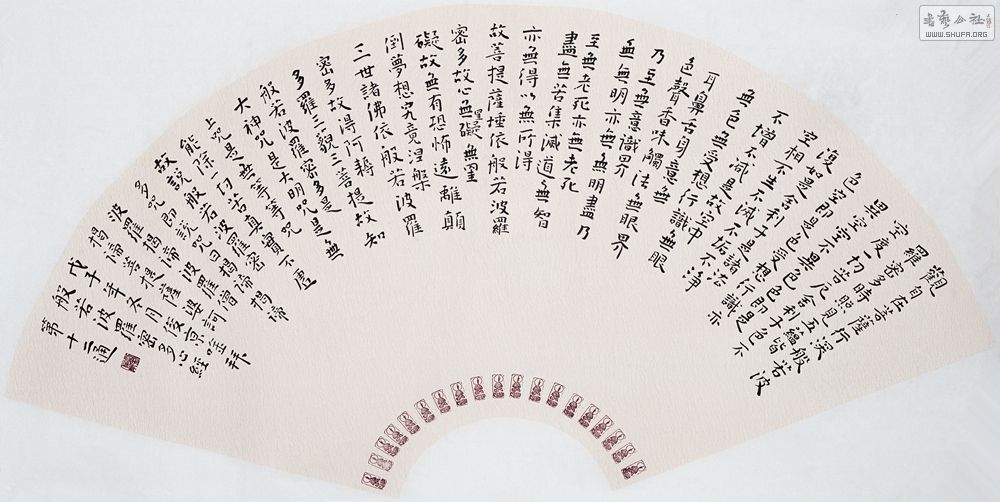 觀自在菩薩行深般若波
羅密多時照見五蘊皆
空度一切苦厄舍利子色不
異空空不異色色即是
色空即是色受想行識亦
復如是舍利子是諸法
空相不生不滅不垢不淨
不增不減是故空中
無色無受想行識無眼
耳鼻舌身意無
色聲香味觸法無眼界
乃至無意識界
無無明亦無無明盡乃
至無老死亦無老死
盡無苦集滅道無智
亦無得以無所得
故菩提薩埵依般若波羅
密多故心無罣礙無罣
礙故無有恐怖遠離顛
倒夢想究竟涅槃
三世諸佛依般若波羅
密多故得阿耨
多羅三藐三菩提故知
般若波羅密多是
大神咒是大明咒是無
上咒是無等等咒
能除一切苦真實不虛
故說般若波羅密
多咒即說咒曰揭諦揭諦
波羅揭諦波羅僧
揭諦菩提薩婆訶
戊子年冬月後學京拜
般若波羅密多心經
第十二通
WWW.SHUFA.ORG